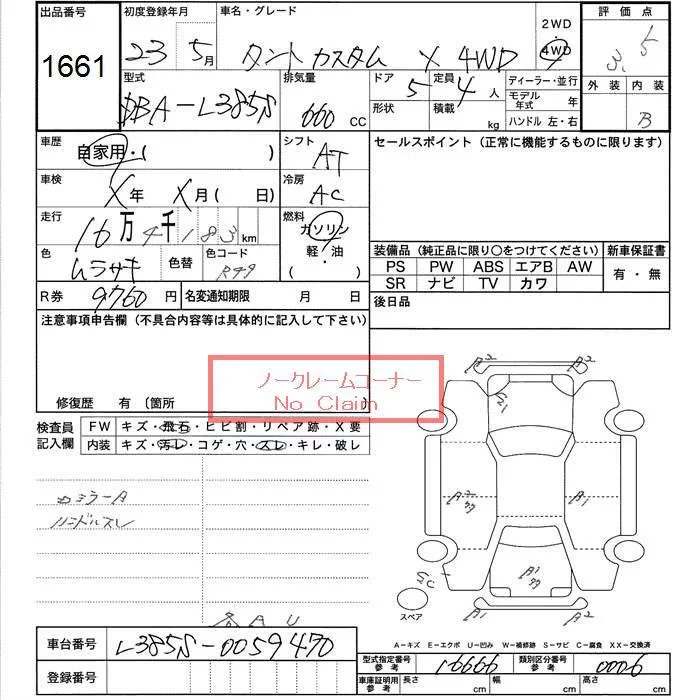 出品番号 初度登録年月 車名・グレード 2WD 評価点
1661 23 5月 タントカスタム X 4WD 4WD 3.5
型式 排気量 ドア 定員 ディーラー・並行 外装 内装
DBA-L385S 660 CC 5 4人 モデル年式 年 B
形状 積載 kg ハンドル 左・右
車歴 自家用・( ) シフト AT セールスポイント (正常に機能するものに限ります)
車検 X年 X月( 日) 冷房 AC
走行 16万4千183km 燃料 ガソリン
軽・油
( )
色 ムラサキ 色替 色コード R49
装備品 (純正品に限り〇をつけてください) 新車保証書
PS PW ABS エアB AW 有・無
SR ナビ TV カワ
R券 9760円 名変通知期限 月 日 後日品
注意事項申告欄 (不具合内容等は具体的に記入して下さい)
ノークレームコーナー
No Claim
修復歴 有 (箇所 )
検査員記入欄 FW キズ・飛石・ヒビ割・リペア跡・X要
内装 キズ・汚レ・コゲ・穴・スレ・キレ・破レ
カミラーA
ハンドルスレ
A2 A2
A2 A1
スペア
B1 A2
A-キズ E-エクボ U-凹み W-補修跡 S-サビ C-腐食 XX-交換済
車台番号 L385S-0059470
型式指定番号 参考 16666 類別区分番号 参考 0006
登録番号
車庫証明用 参考 長さ cm 幅 cm 高さ cm